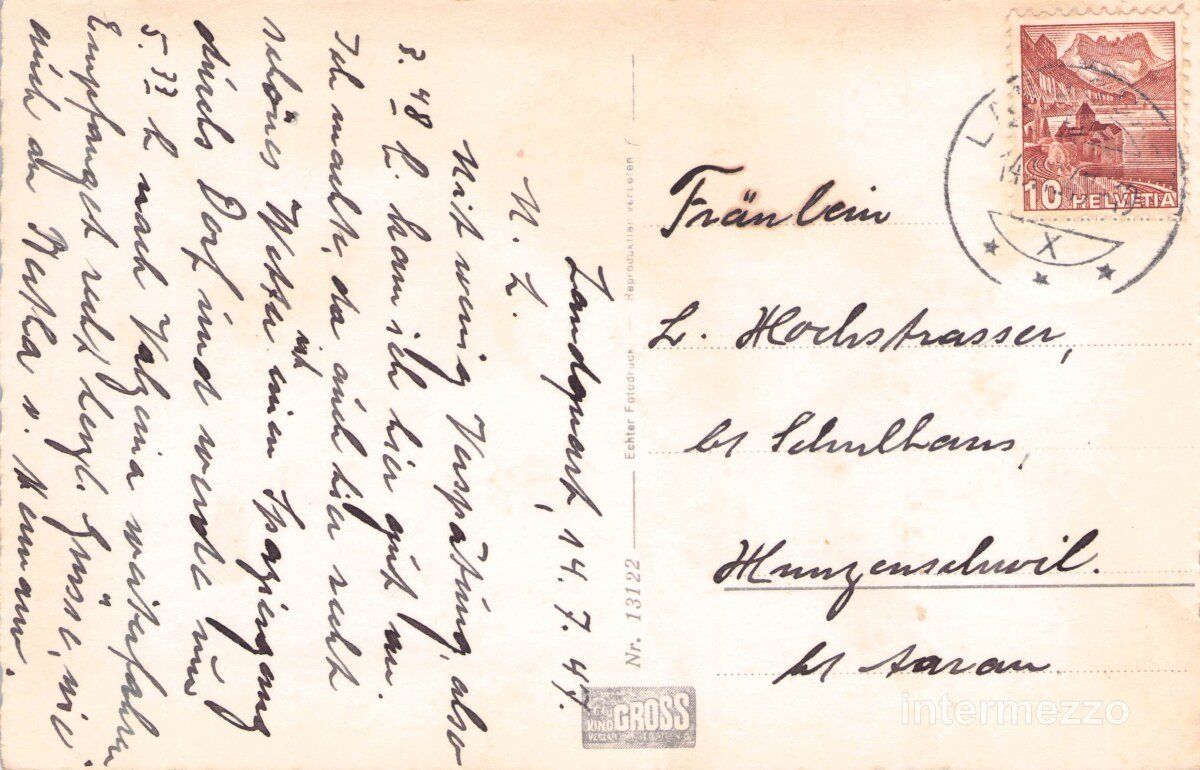 Landquart, 14. 7. 47.
M. L.
Mit wenig Verspätung, also
3. 48 h. kam ich hier gut an.
Ich machte, da auch hier recht
schönes Wetter ist, einen Spaziergang
durchs Dorf und werde um
5. 33 h nach Valzeina weiterfahren
Empfanget recht herzl. Grüsse, wie
auch an Bertha v.
Nr. 13122
Echter Fotodruck
Reproduktion verboten
GROSS
10 HELVETIA
14
X
Fräulein
L. Hochstrasser,
bs Schulhaus,
Hunzenschwil.
bs Aarau
intermezzo